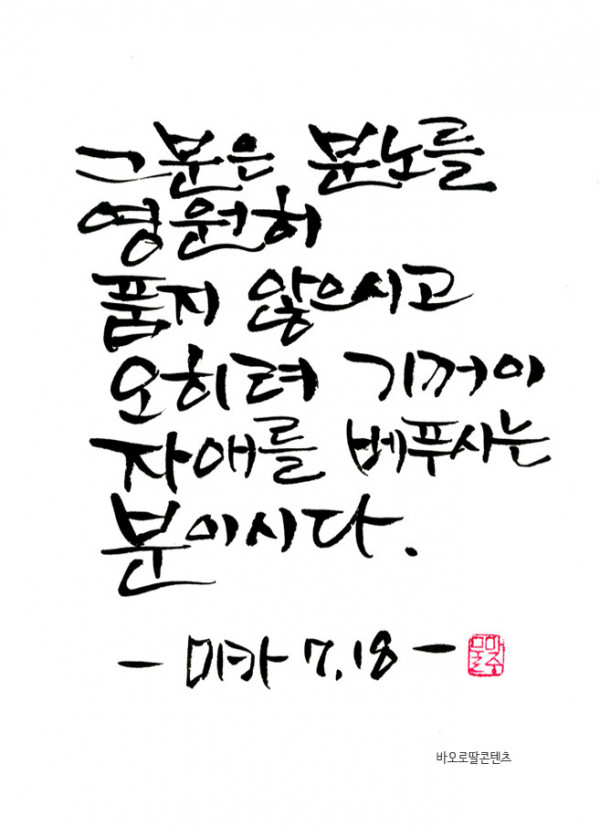 그분은 분노를
영원히
품지 않으시고
오히려 기꺼이
자애를 베푸시는
분이시다.
- 미카 7,18 -
바오로딸콘텐츠